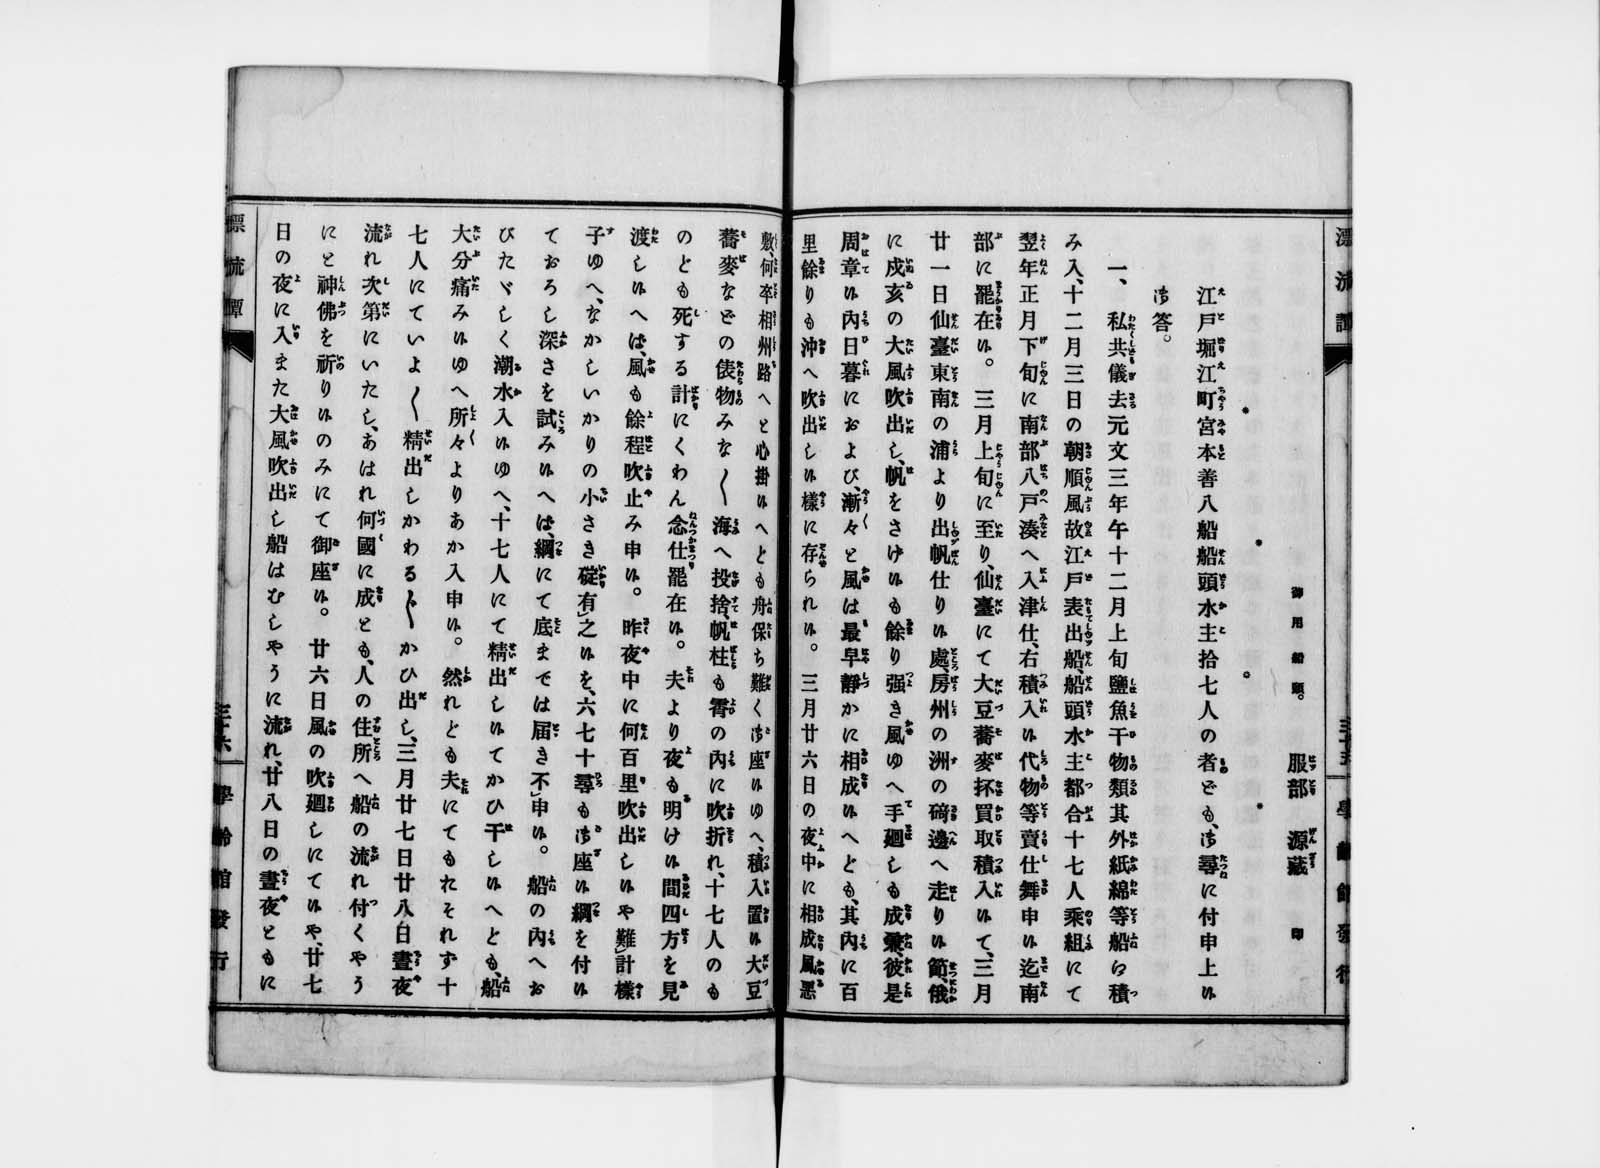 漂流譚
三十五
學齡館發行
御用船頭。 服部 源藏 印
江戸堀江町宮本善八船船頭水主拾七人の者ども、御尋に付申上候
御答。
一、私共儀去元文三年午十二月上旬鹽魚干物類其外紙綿等船に積
み入、十二月三日の朝順風故江戸表出船、船頭水主都合十七人乘組にて
翌年正月下旬に南部八戸湊へ入津仕、右積入候代物等賣仕舞申候迄南
部に罷在候。三月上旬に至り、仙臺にて大豆蕎麥抔買取積入候て、三月
廿一日仙臺東南の浦より出帆仕り候處、房州の洲の碕邊へ走り候節、俄
に戌亥の大風吹出し、帆をさげ候も餘り强き風ゆへ手廻しも成兼、彼是
周章候內日暮におよび、漸々と風は最早靜かに相成候へども、其內に百
里餘りも沖へ吹出し候樣に存られ候。三月廿六日の夜中に相成風惡
敷、何卒相州路へと心掛候へども舟保ち難く御座候ゆへ、積入置候大豆
蕎麥などの俵物みな〱海へ投捨、帆柱も霄の內に吹折れ、十七人のも
のども死する計にくわん念仕罷在候。夫より夜も明け候間四方を見
渡し候へば、風も餘程吹止み申候。昨夜中に何百里吹出し候や難計樣
子ゆへ、なかしいかりの小さき碇有之候を、六七十尋も御座候綱を付候
ておろし深さを試み候へば、綱にて底までは届き不申候。船の內へお
びたゞしく潮水入候ゆへ、十七人にて精出し候てかひ干し候へども、船
大分痛み候ゆへ所々よりあか入申候。然れども夫にてもたれそれず十
七人にていよ〱精出しかわる〲かひ出し、三月廿七日廿八日晝夜
流れ次第にいたし、あはれ何國に成とも、人の住所へ船の流れ付くやう
にと神佛を祈り候のみにて御座候。廿六日風の吹廻しにて候や、廿七
日の夜に入また大風吹出し船はむしやうに流れ、廿八日の晝夜ともに
漂流譚
三十六
學齡館發行